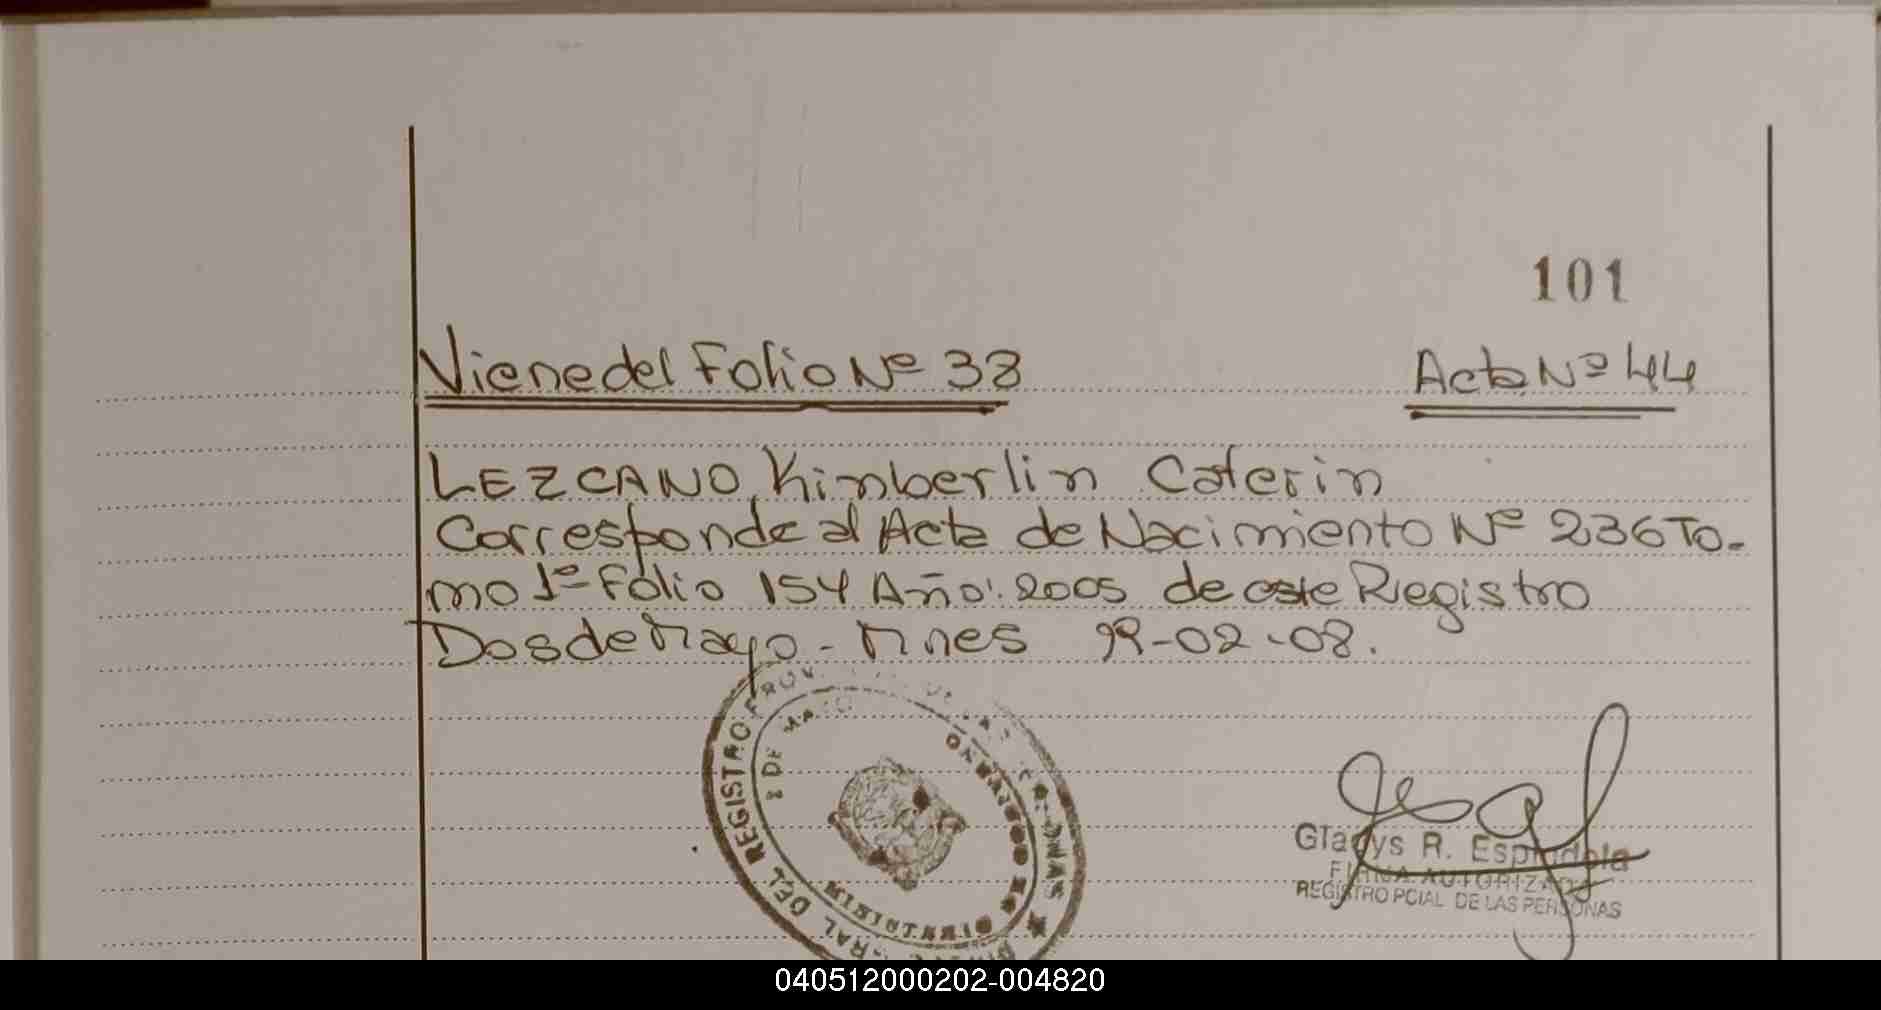 101
Viene del Folio Nº 38 Acta Nº 44
LEZCANO, Kimberlin Caterin
Corresponde al Acta de Nacimiento Nº 236 To-
mo 1º Folio 154 Año: 2005 de este Registro
Dos de Mayo - Mnes -02-08.
REGISTRO
2 DE MAYO
MINISTERIO DE GOBIERNO
Gladys R. Espindola
FIRMA AUTORIZADA
REGISTRO PCIAL DE LAS PERSONAS
040512000202-004820